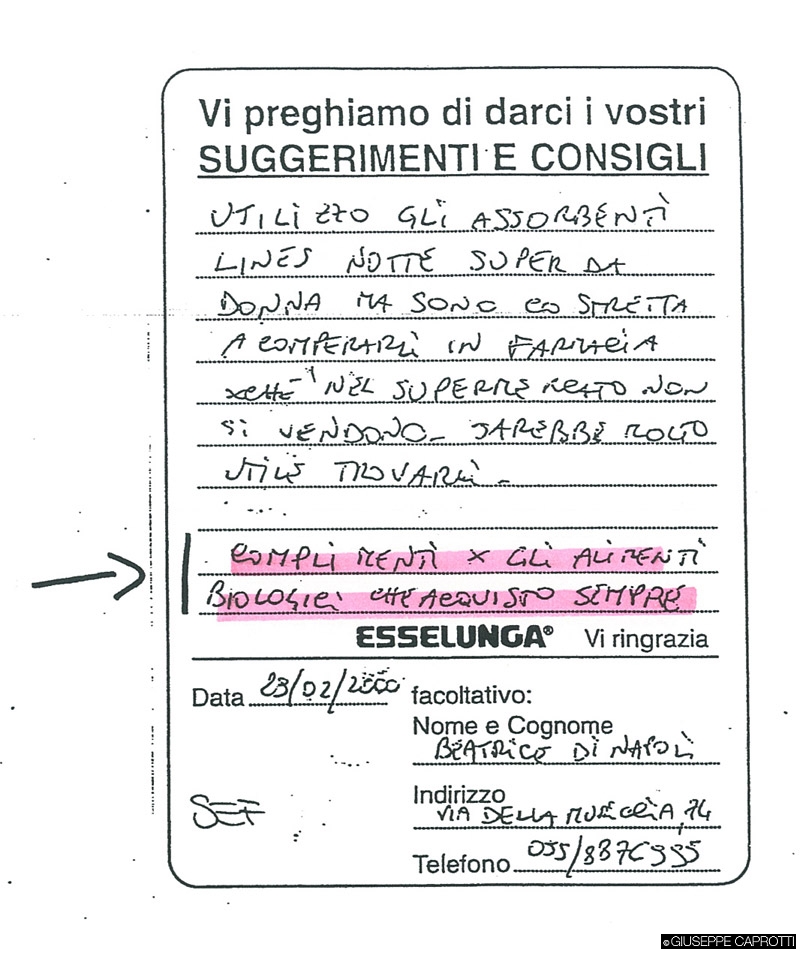 Vi preghiamo di darci i vostri
SUGGERIMENTI E CONSIGLI
UTILIZZO GLI ASSORBENTI
LINES NOTTE SUPER DA
DONNA MA SONO COSTRETTA
A COMPERARLI IN FARMACIA
XCHÉ NEL SUPERMERCATO NON
SI VENDONO_ SAREBBE MOLTO
UTILE TROVARLI_
COMPLIMENTI X GLI ALIMENTI
BIOLOGICI CHE ACQUISTO SEMPRE
ESSELUNGA® Vi ringrazia
Data 23/02/2000 facoltativo:
Nome e Cognome
BEATRICE DI NAPOLI
Indirizzo
VIA DELLA 74
SEF
Telefono 055/
©GIUSEPPE CAPROTTI